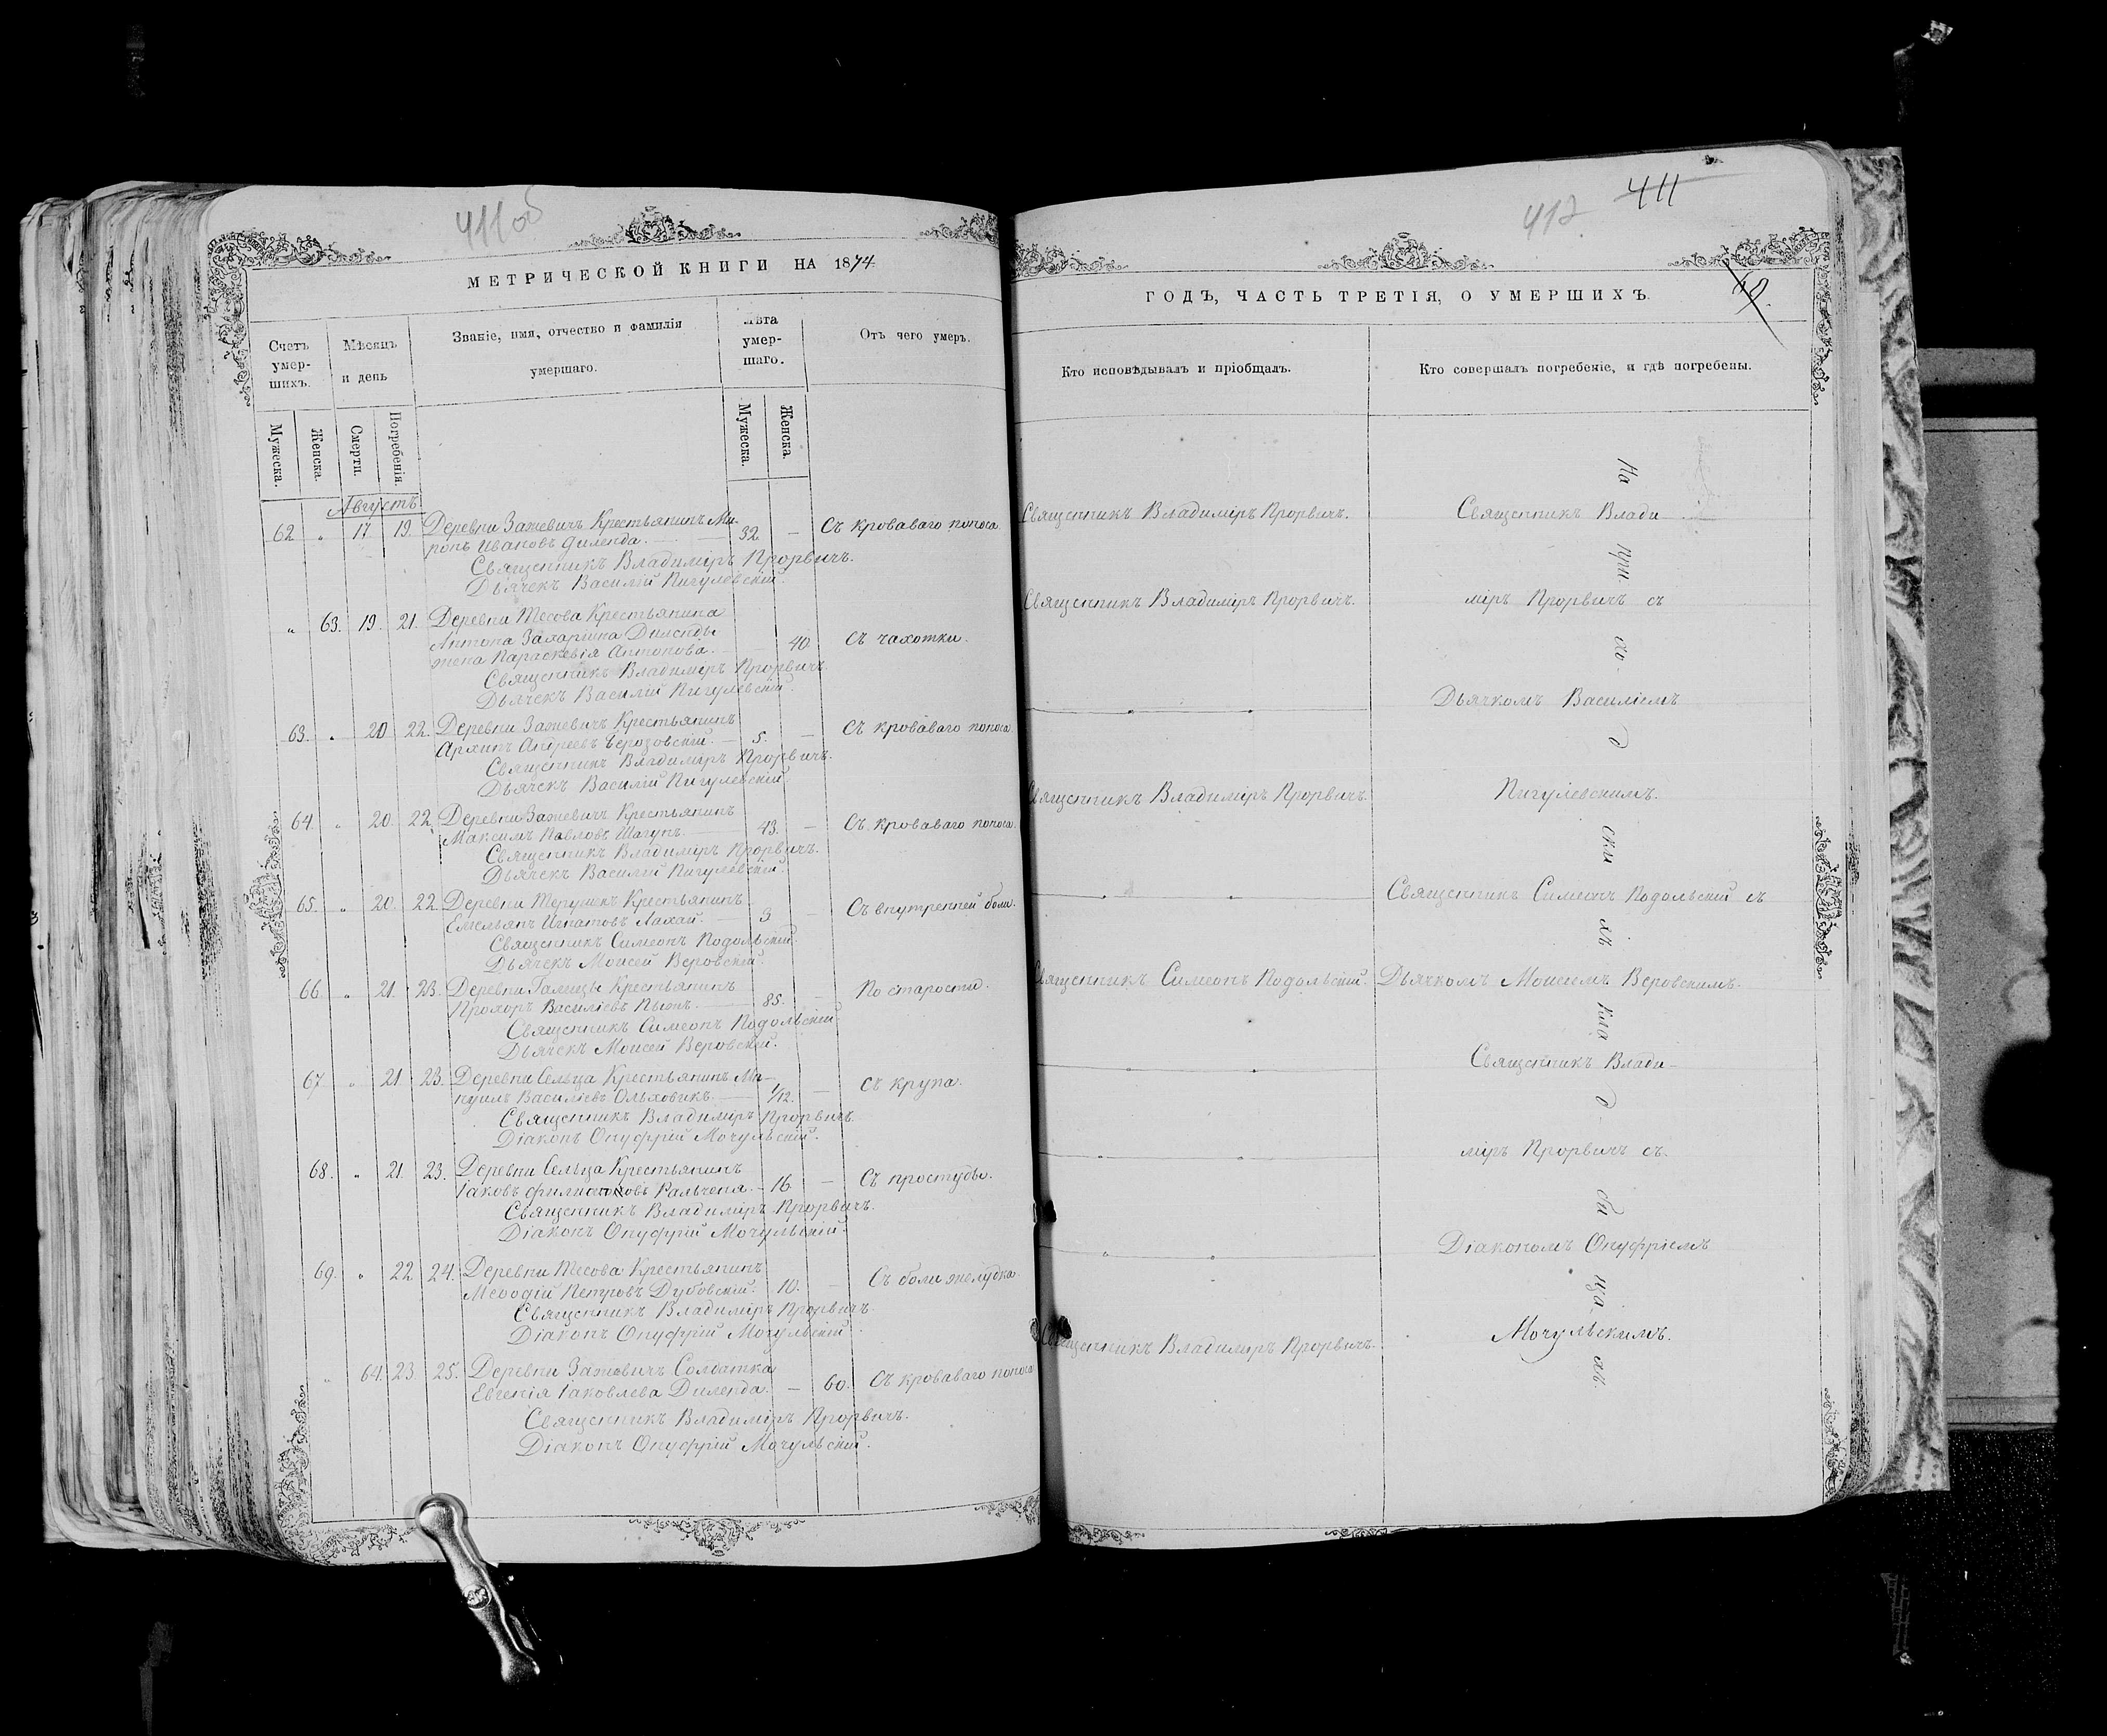 411 об
МЕТРИЧЕСКОЙ КНИГИ НА 1874
Счетъ умер-
шихъ.
Мѣсяцъ
и день
Званіе, имя, отчество и фамилія
умершаго.
Лѣта
умер-
шаго.
Отъ чего умеръ.
Мужеска.
Женска.
Смерти.
Погребенія.
Мужеска.
Женска.
Августъ
62 " 17 19. Деревни Зажевичъ Крестьянинъ Ми-
ронъ Ивановъ Диленда. 32. — Съ кроваваго поноса.
Священникъ Владиміръ Прорвичъ.
Дьячекъ Василій Пигулевскій.
" 63. 19. 21. Деревни Тесова Крестьянина
Антона Захаріина Диленды
жена Параскевія Антонова. — 40. Съ чахотки.
Священникъ Владиміръ Прорвичъ.
Дьячекъ Василій Пигулевскій.
63. " 20 22. Деревни Зажевичъ Крестьянинъ
Архипъ Андреевъ Берозовскій. — 5. — Съ кроваваго поноса
Священникъ Владиміръ Прорвичъ.
Дьячекъ Василій Пигулевскій
64. " 20. 22. Деревни Зажевичъ Крестьянинъ
Максимъ Павловъ Шагунъ. 43. — Съ кроваваго поноса.
Священникъ Владиміръ Прорвичъ.
Дьячекъ Василій Пигулевскій.
65. " 20. 22. Деревни Терушкъ Крестьянинъ
Емельянъ Игнатовъ Лахай. — 3 Съ внутренней боли.
Священникъ Симеонъ Подольскій.
Дьячекъ Моисей Веровскій.
66. " 21. 23. Деревни Галицы Крестьянинъ
Прохоръ Василіевъ Пыпъ. 85. — По старости.
Священникъ Симеонъ Подольскій.
Дьячекъ Моисей Веровскій.
67 " 21. 23. Деревни Сельца Крестьянинъ Ма-
нуилъ Василіевъ Ольховикъ. 1/12. — Съ крупа.
Священникъ Владиміръ Прорвичъ.
Діаконъ Онуфрій Мочульскій.
68. " 21. 23. Деревни Сельца Крестьянинъ
Іаковъ Ральченя. — 16. — Съ простуды.
Священникъ Владиміръ Прорвичъ.
Діаконъ Онуфрій Мочульскій.
69. " 22. 24. Деревни Тесова Крестьянинъ
Меѳодій Петровъ Дубовскій. 10. — Съ боли желудка.
Священникъ Владиміръ Прорвичъ.
Діаконъ Онуфрій Мочульскій.
" 64. 23. 25. Деревни Зажевичъ Солдатка
Евгенія Іаковлева Диленда. — 60. Съ кроваваго поноса
Священникъ Владиміръ Прорвичъ.
Діаконъ Онуфрій Мочульскій.
412. 411
ГОДЪ, ЧАСТЬ ТРЕТІЯ, О УМЕРШИХЪ.
Кто исповѣдывалъ и пріобщалъ.
Кто совершалъ погребеніе, и гдѣ погребены.
Священникъ Владиміръ Прорвичъ.
Священникъ Владиміръ Прорвичъ.
Священникъ Владиміръ Прорвичъ.
Священникъ Симеонъ Подольскій.
Священникъ Владиміръ Прорвичъ.
Священникъ Влади
міръ Прорвичъ съ
Дьячкомъ Василіемъ
Пигулевскимъ.
Священникъ Симеонъ Подольскій съ
Дьячкомъ Моисеемъ Веровскимъ.
Священникъ Влади-
міръ Прорвичъ съ.
Діакономъ Онуфріемъ
Мочульскимъ.
На при- хо- д ски хъ кла д- би ща- хъ.